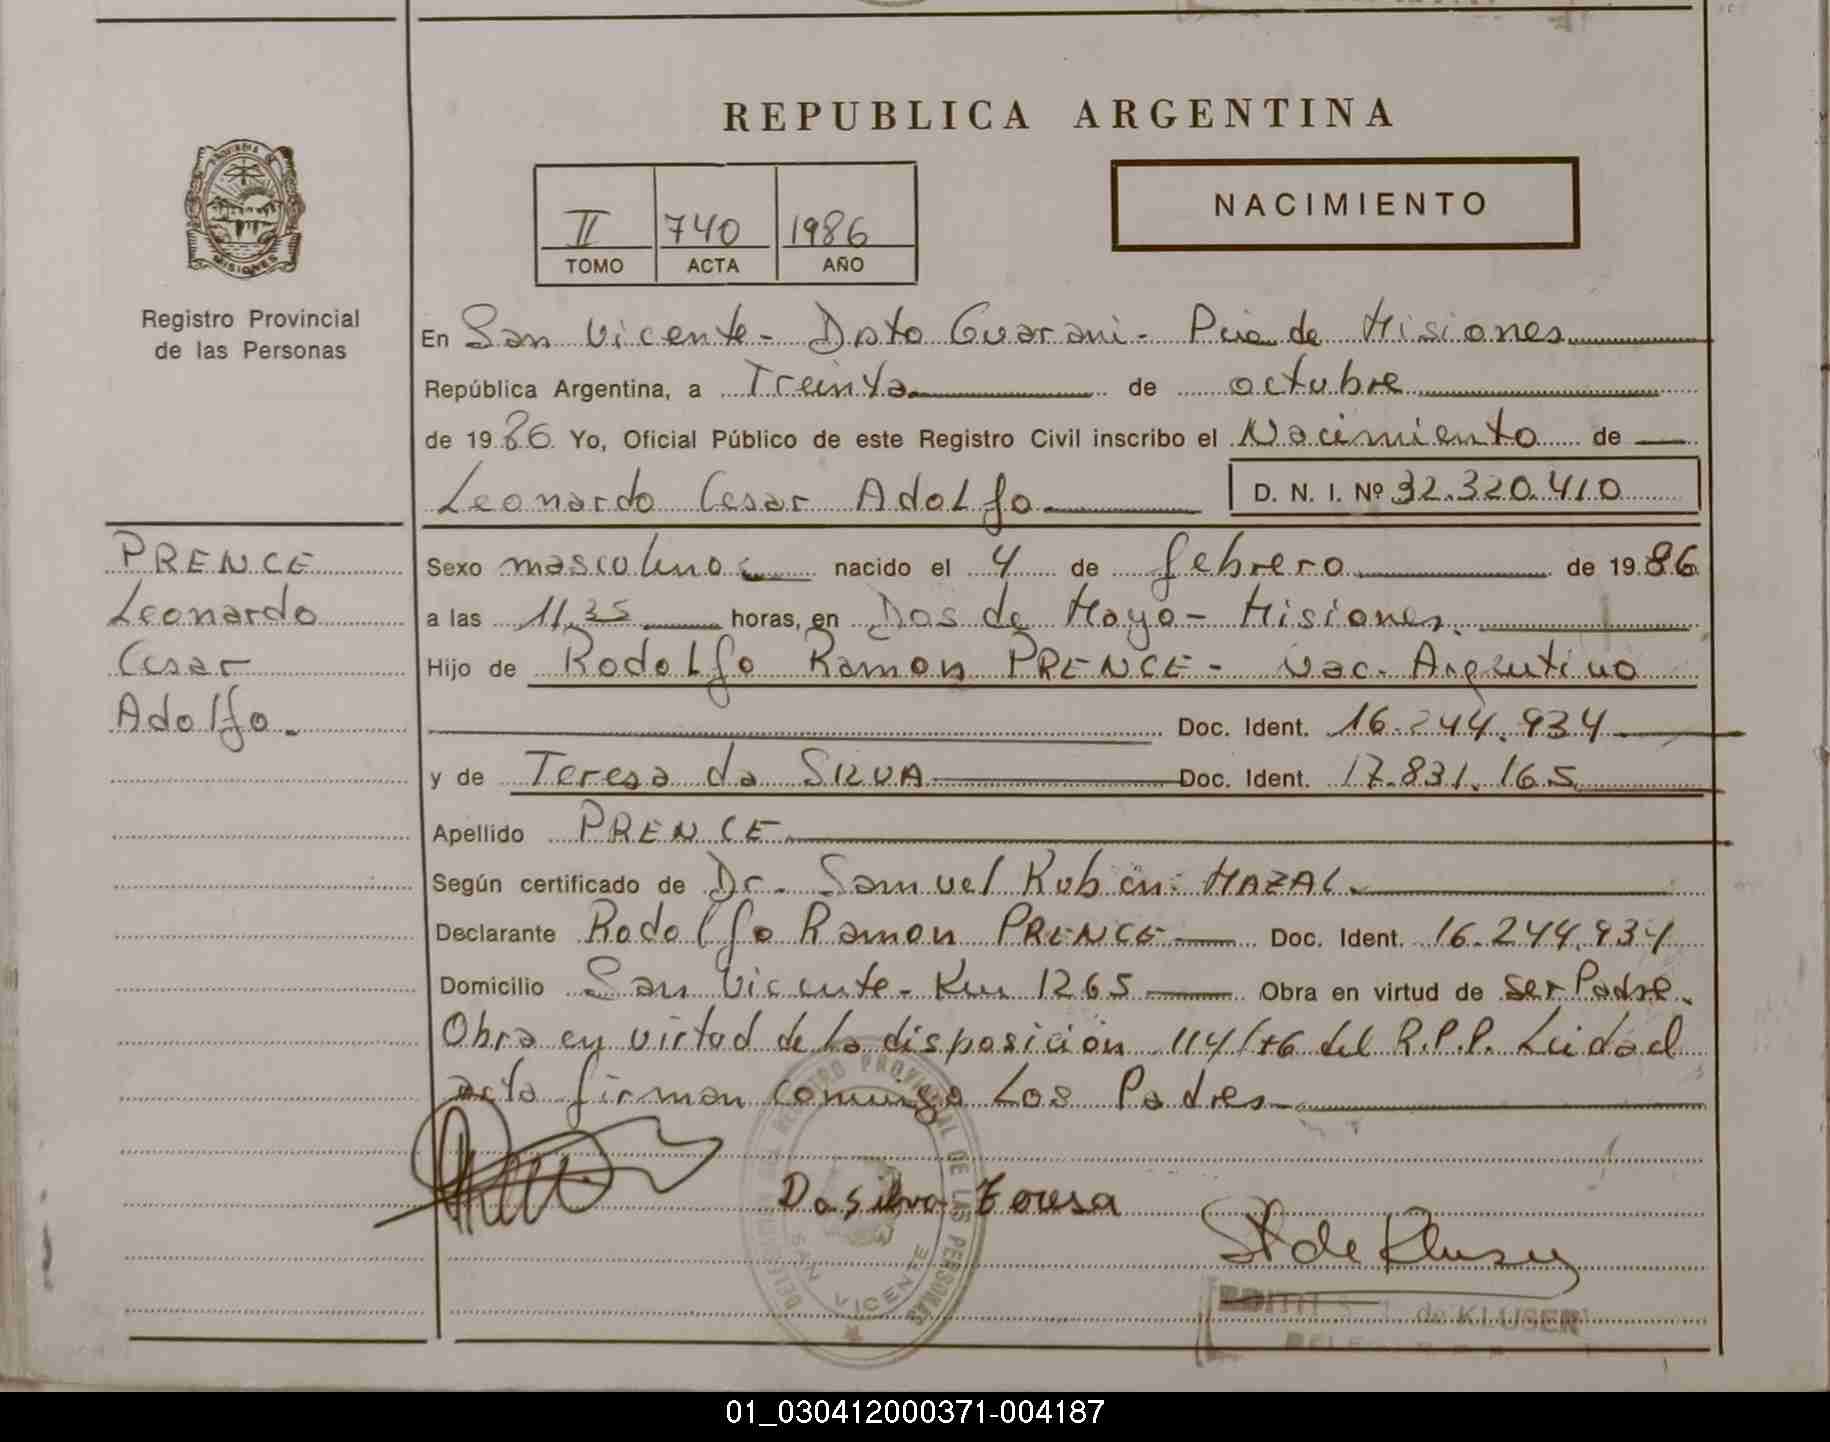 REPUBLICA ARGENTINA
PROVINCIA DE
MISIONES
Registro Provincial
de las Personas
II 740 1986
TOMO ACTA AÑO
NACIMIENTO
En San Vicente - Dpto Guarani - Pcia de Misiones
República Argentina, a Treinta de octubre
de 1986 Yo, Oficial Público de este Registro Civil inscribo el Nacimiento de
Leonardo Cesar Adolfo D. N. I. Nº 32.320.410
PRENCE
Leonardo
Cesar
Adolfo.
Sexo masculino nacido el 4 de febrero de 1986
a las 11,35 horas, en Dos de Mayo - Misiones.
Hijo de Rodolfo Ramon PRENCE - nac. Argentino
Doc. Ident. 16.244.934
y de Teresa da SILVA Doc. Ident. 17.831.165
Apellido PRENCE
Según certificado de Dr. Samuel Rubén HAZAL
Declarante Rodolfo Ramon PRENCE Doc. Ident. 16.244.934
Domicilio San Vicente - Km 1265 Obra en virtud de ser Padre.
Obra en virtud de la disposición 114/76 del R.P.P. Leida el
acta firman conmigo Los Padres
Da Silva Teresa
de Kluser
DEL REGISTRO PROVINCIAL DE LAS PERSONAS
SAN VICENTE
EDITH de KLUSER
01_030412000371-004187